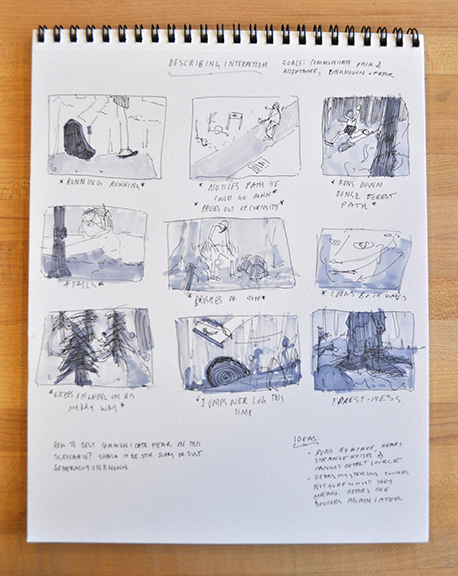 DESCRIBING INTERACTION
GOALS: COMMUNICATE PAIN &
ACCEPTANCE, UNKNOWN + FEAR
* RUNNING RUNNING *
* NOTICES PATH HE
COULD GO DOWN
PAUSES OUT OF CURIOSITY *
* RUNS DOWN
DENSE FOREST
PATH *
* FALLS *
* BRUSHES OFF *
* LOOKS BOTH WAYS
* KEEPS ON GOING ON HIS
MERRY WAY *
* JUMPS OVER LOG THIS
TIME
FOREST-NESS
HOW TO BEST COMMUNICATE FEAR IN THIS
SCENARIO? SHOULD IT BE STH SCARY OR JUST
GENERALLY UNKNOWN.
IDEAS:
- RUNS BY A CAVE, HEARS
STRANGE NOISES &
CANNOT DETECT SOURCE
- HEARS MYSTERIOUS SOUNDS
NOT SURE WHAT THEY
MEAN. HEARS THE
SOUNDS AGAIN LATER